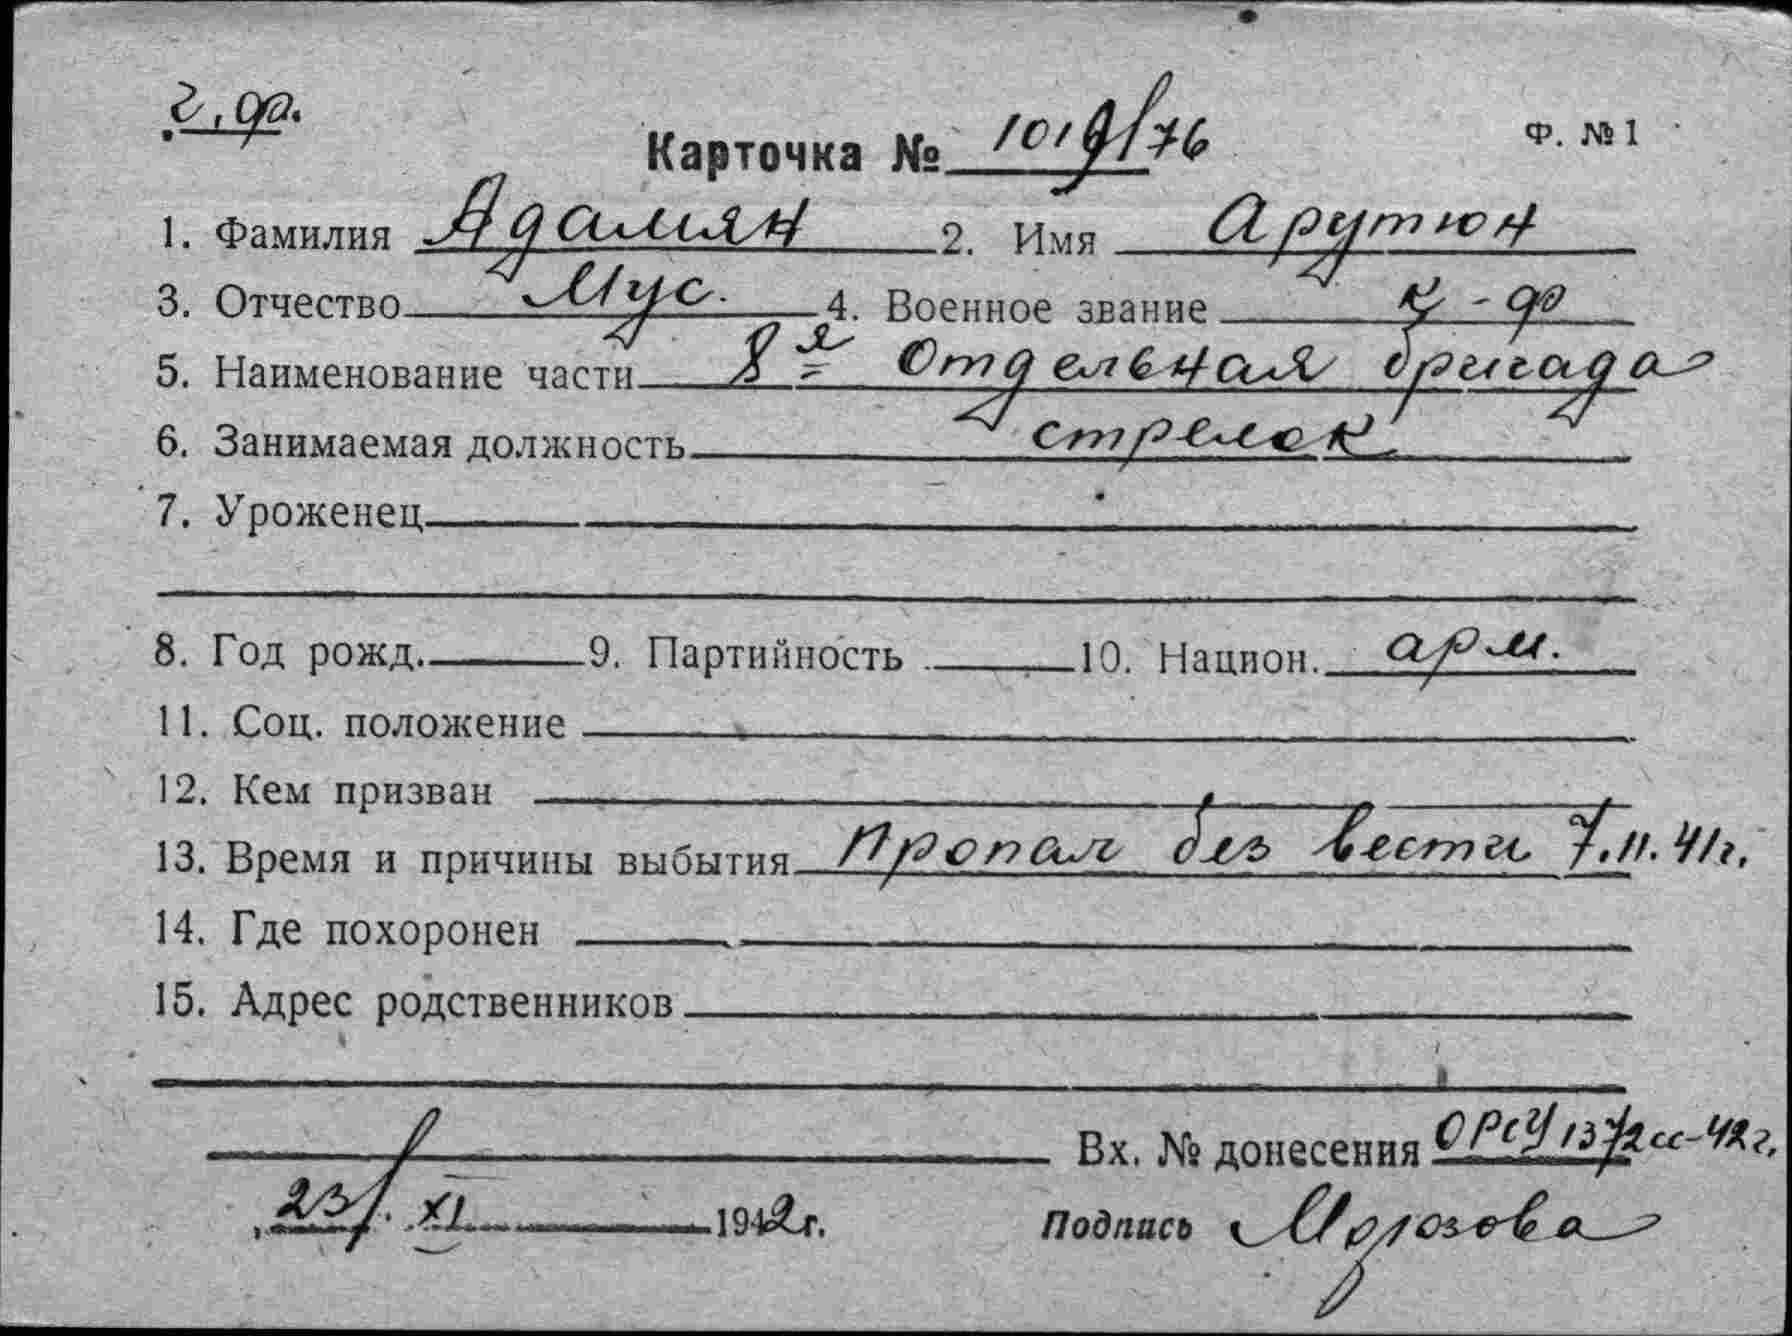 г. ф.
Карточка № 1019/76 Ф. №1
1. Фамилия Адамян 2. Имя Арутюн
3. Отчество Мус. 4. Военное звание к-ф
5. Наименование части 8я Отдельная бригада
6. Занимаемая должность стрелок
7. Уроженец
8. Год рожд. 9. Партийность 10. Национ. арм.
11. Соц. положение
12. Кем призван
13. Время и причины выбытия Пропал без вести 7.11.41г.
14. Где похоронен
15. Адрес родственников
Вх. № донесения ОРСУ 1372сс-42г.
23/XI 1942г. Подпись Морозова